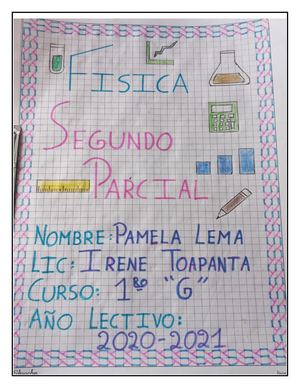 FISICA
SEGUNDO
PARCIAL
NOMBRE: PAMELA LEMA
LIC: IRENE TOAPANTA
CURSO: 1ᴿᴼ "G"
AÑO LECTIVO:
2020-2021